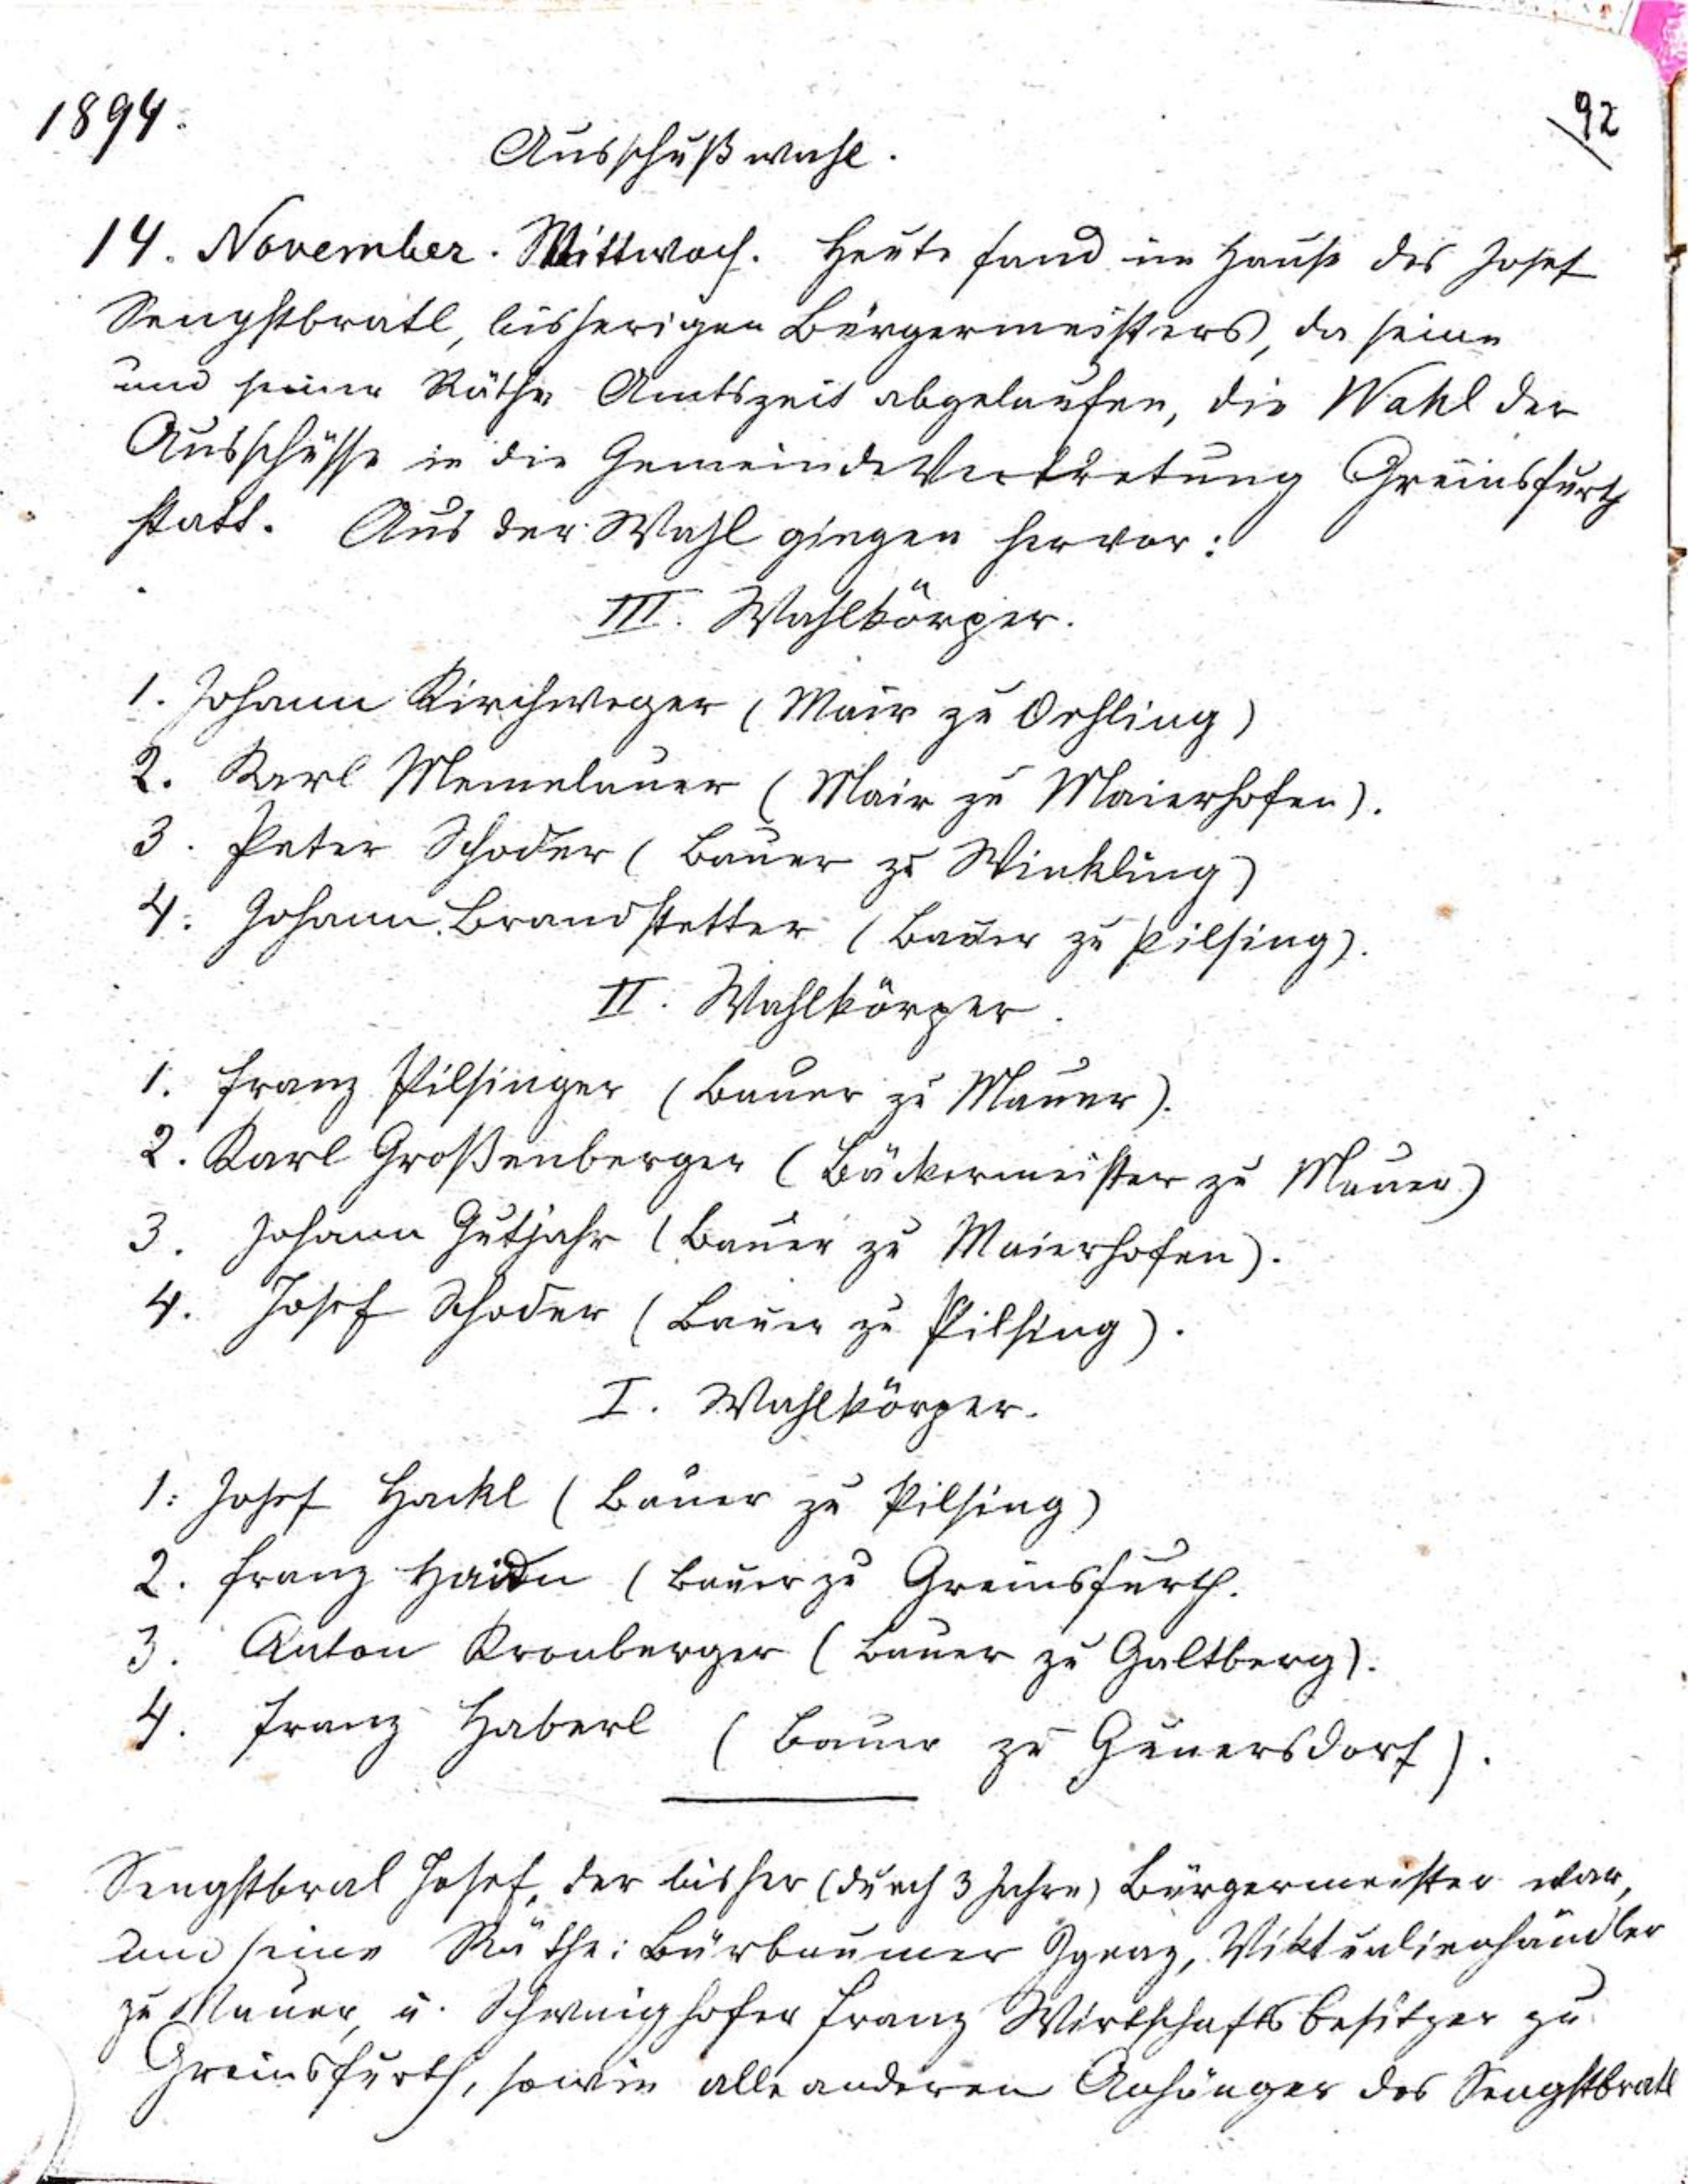 1894.
92
Ausschußwahl.
14. November. Mittwoch. Heute fand im Hause des Josef
Sengstbratl, bisherigen Bürgermeisters, da seine
und seiner Räthe Amtszeit abgelaufen, die Wahl der
Ausschüsse in die Gemeinde Vertretung Greinsfurth
statt. Aus der Wahl gingen hervor:
III. Wahlkörper.
1. Johann Kirchweger (Mair zu Oehling)
2. Karl Memelauer (Mair zu Maierhofen).
3. Peter Schoder (Bauer zu Winkling)
4. Johann Brandstetter (Bauer zu Pilsing).
II. Wahlkörper.
1. Franz Pilsinger (Bauer zu Mauer).
2. Karl Großenberger (Bäckermeister zu Mauer)
3. Johann Gutjahr (Bauer zu Maierhofen).
4. Josef Schoder (Bauer zu Pilsing).
I. Wahlkörper.
1. Josef Hackl (Bauer zu Pilsing)
2. Franz (Bauer zu Greinsfurth.
3. Anton Kronberger (Bauer zu Galtberg).
4. Franz Haberl (Bauer zu
Sengstbral Josef, der bisher (durch 3 Jahre) Bürgermeister war,
und seine Räthe: Bürbaumer Ignaz, Viktualienhändler
zu Mauer, u. Schweighofer Franz Wirtschaftsbesitzer zu
Greinsfurth, sowie alle anderen Anhänger des Sengstbratl